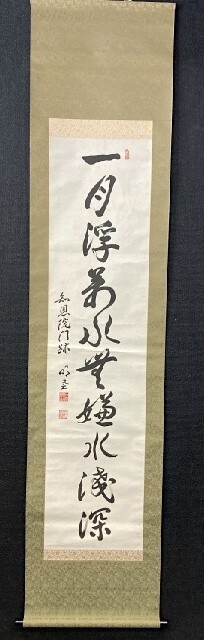 一月浮萬水無嫌水浅深
知恩院門跡